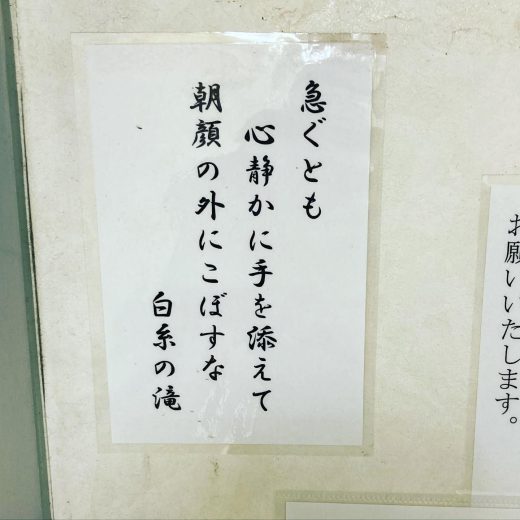 急ぐとも
心静かに手を添えて
朝顔の外にこぼすな
白糸の滝
お願いいたします。